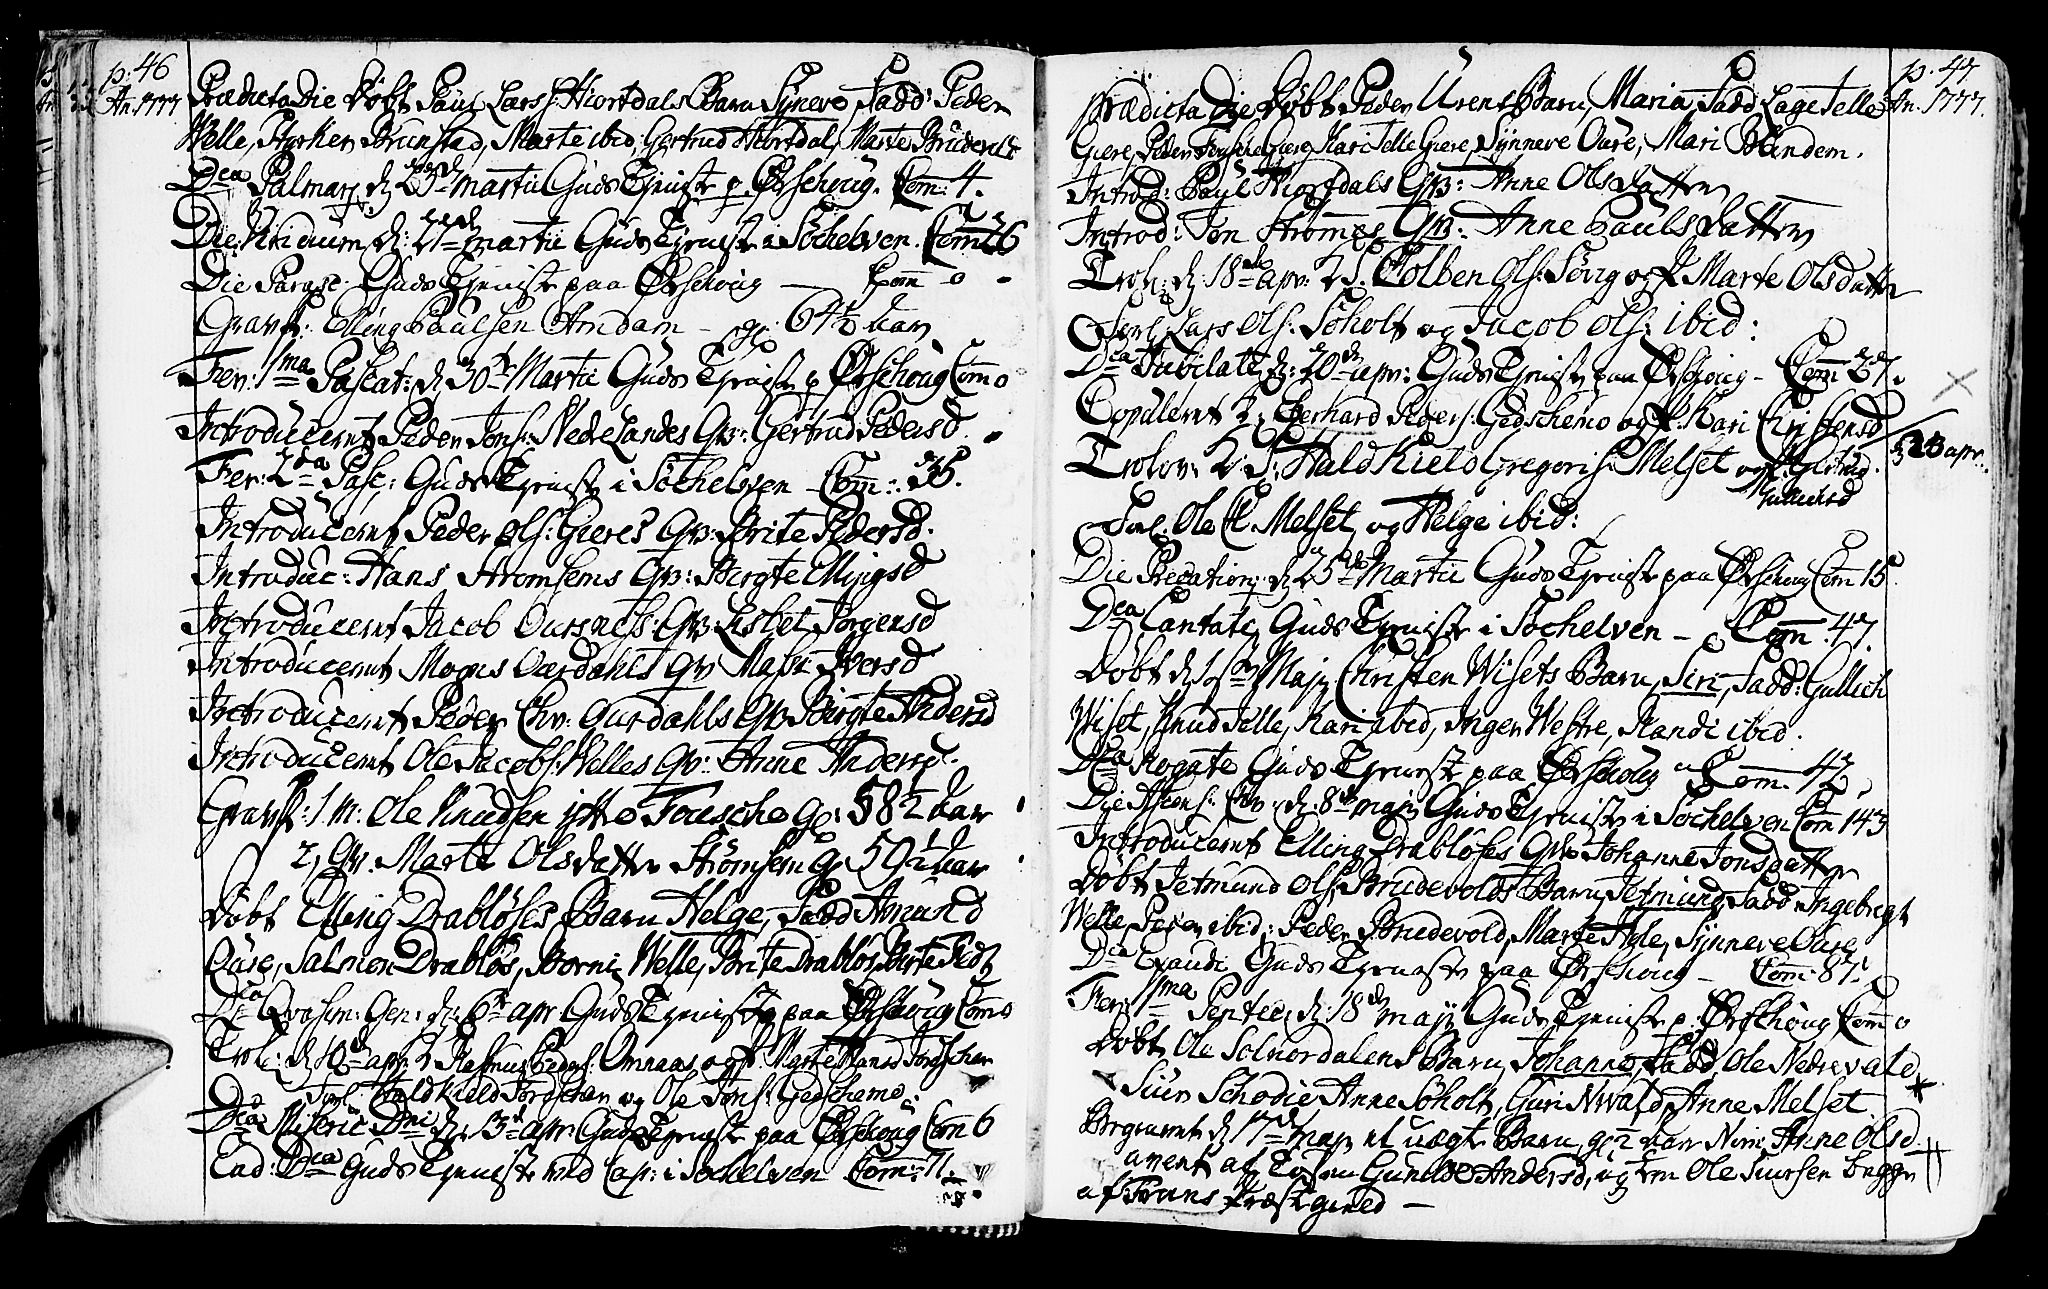 p. 46
An. 1777
Prædicta Die Døbt Paul Lars: Hiortdals Barn Synneve, Fadd: Peder
Welle, Styrker Brunstad, Marte ibid, Gertrud Hiortdal, Marte Brudevold
Dca Palmar: d: 23de Martii Guds Tieniste p Ørschoug. Com: 4.
Die Viridium, d: 27de Martii Guds Tieniste i Søchelven. Com: 26
Die Parasc: Guds Tieniste paa Ørschoug — Com 0 -
Gravf: Elling Paulsen Amdam - gl: 64½ aar
Fer: 1ma Pascat: d: 30te Martii Guds Tieniste p Ørschoug Com 0
Introducernt Peder Jons: Nedre Landes Qv: Gertrud Pedersd.
Fer: 2da Pasc: Guds Tieniste i Søchelven - Com: 36.
Introducernt Peder Ols: Gieres Qv: Brite Pedersd.
Introduc: Hans Strømhems Qv: Birgte Ellingsd
Introducernt Jacob Oursnes: Qv: Lisbet Jørgensd
Introducernt Mogns Værdahls Qv Massi Iversd
Introducernt Peder Chr: Gurdahls Qv Birgte Andersd
Introducernt Ole Jacobs: Welles Qv: Anne Andersd.
Gravf: 1 M: Ole Knudsen Fousche gl: 58½ aar
2, Qv. Marte Olsdatter Strømhem gl 59½ aar
Døbt Elling Drabløses Barn Helge, Fadd Amund
Oure, Salmon Drabløs, Borni Welle, Brite Drabløs, Birte
Dca Qvasim: Gen: d: 6te apr Guds Tieniste paa Ørschoug Com 0
Trol: d: 10de apr: Rasmus Peders: Omnaas og Marte Hans
Forl: Haldkield og Ole Jons: Gedschemo.
Dca Miseric Dni d: 13de apr: Guds Tieniste paa Ørschoug Com 6
Ead: Dca Guds Tieniste ved Cap: i Søchelven Com: 71.
p. 47.
An. 1777.
Prædicta Die Døbt Peder Urens Barn, Maria, Fadd Lage Jelle
Giere, Peder Giere, Kari Jelle Giere, Synneve Oure, Mari Blindem.
Introd: Paul Hiortdals Qv: Anne Olsdatter
Introd: Jon Strømes Qv: Anne Paulsdatter
Trol: d: 18de apr: S. Colben Ols: Søvig og P Marte Olsdatter
Forl: Lars Ols: Søholt og Jacob Ols: ibid:
Dca Jubilate d: 20de apr: Guds Tieniste paa Ørschoug - Com 27.
Copulernt Eberhard Peders: Gedschemo og Kari Christensd
Trolov: S: Haldkield Gregoris: Melset og Gertrud
Gullichsd
23 apr.
Forl: Ole Melset og Helge ibid:
Die Precation: d: 25de Martii Guds Tieniste paa Ørschoug Com 15
Dca Cantate Guds Tieniste i Søchelven - Com: 47.
Døbt d: 1ste Maji Christen Wisets Barn, Siri, Fadd: Gullich
Wiset, Knud Jelle, Kari ibid, Inger Westre, Randi ibid.
Dca Rogate Guds Tieniste paa Ørschoug - Com. 42.
Die Ascens: Chr: d: 8de maji Guds Tieniste i Søchelven Com 143
Introducernt Elling Drabløses Qv: Johanne Jonsdatter
Døbt Jetmund Ols: Brudevolds Barn, Jetmund, Fadd Ingebregt
Welle, ibid, Peder Brudevold, Marte Hole, Synneve Oure
Dca Exaudi Guds Tieniste paa Ørschoug - Com: 87.
Fer: 1ma Pentec: d: 18de maji Guds Tieniste p. Ørschoug Com 0
Døbt Ole Solnørdalens Barn, Johanne, Fadd, Ole Nedrevale
Siur Schodie, Anne Søholt, Guri Nwald, Anne Melset
Begravet d: 17de maji et uægte Barn gl ½ aar Anne Olsd
avlet af Gunilde Andersd, og Ole Siursen begge
af Præstegield —